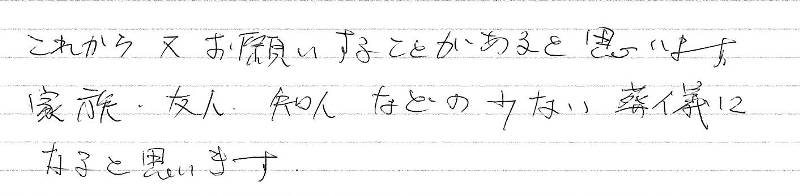 これから又お願いすることがあると思います
家族・友人・知人などの少ない葬儀に
なると思います